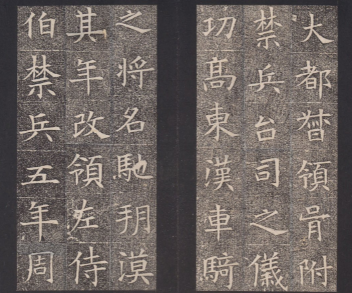 大都督領骨附
禁兵台司之儀
功高東漢車騎
之將名馳朔漠
其年改領左侍
伯禁兵五年周